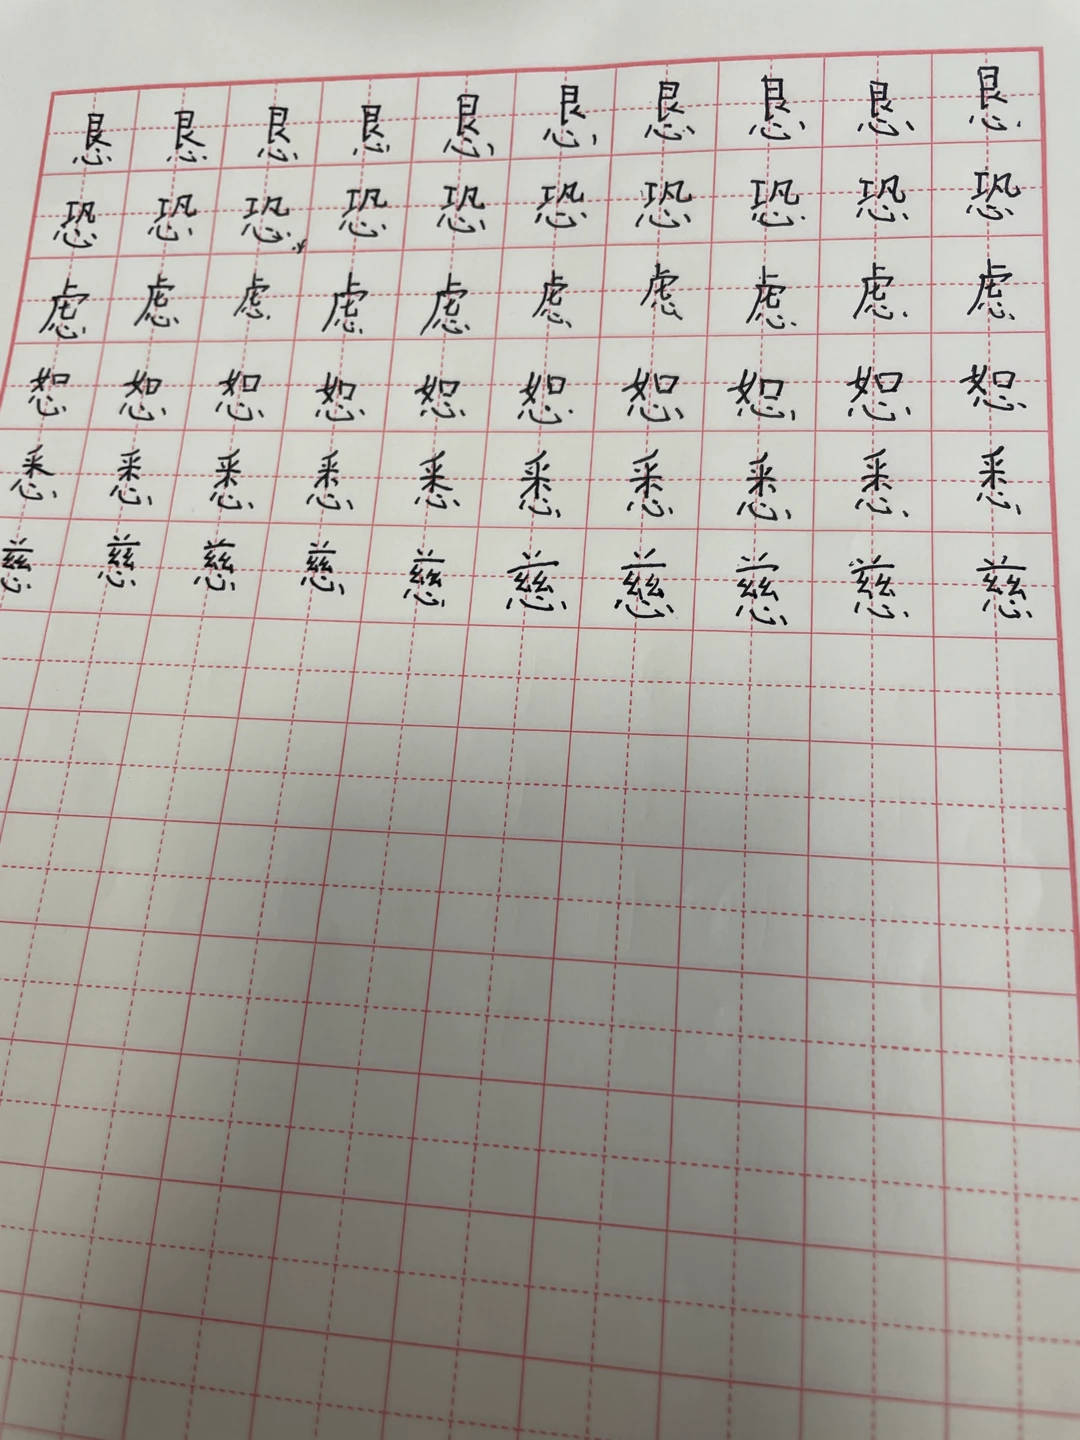 恳恳恳恳恳恳恳恳恳恳
恐恐恐恐恐恐恐恐恐恐
虑虑虑虑虑虑虑虑虑虑
恕恕恕恕恕恕恕恕恕恕
悉悉悉悉悉悉悉悉悉悉
慈慈慈慈慈慈慈慈慈慈